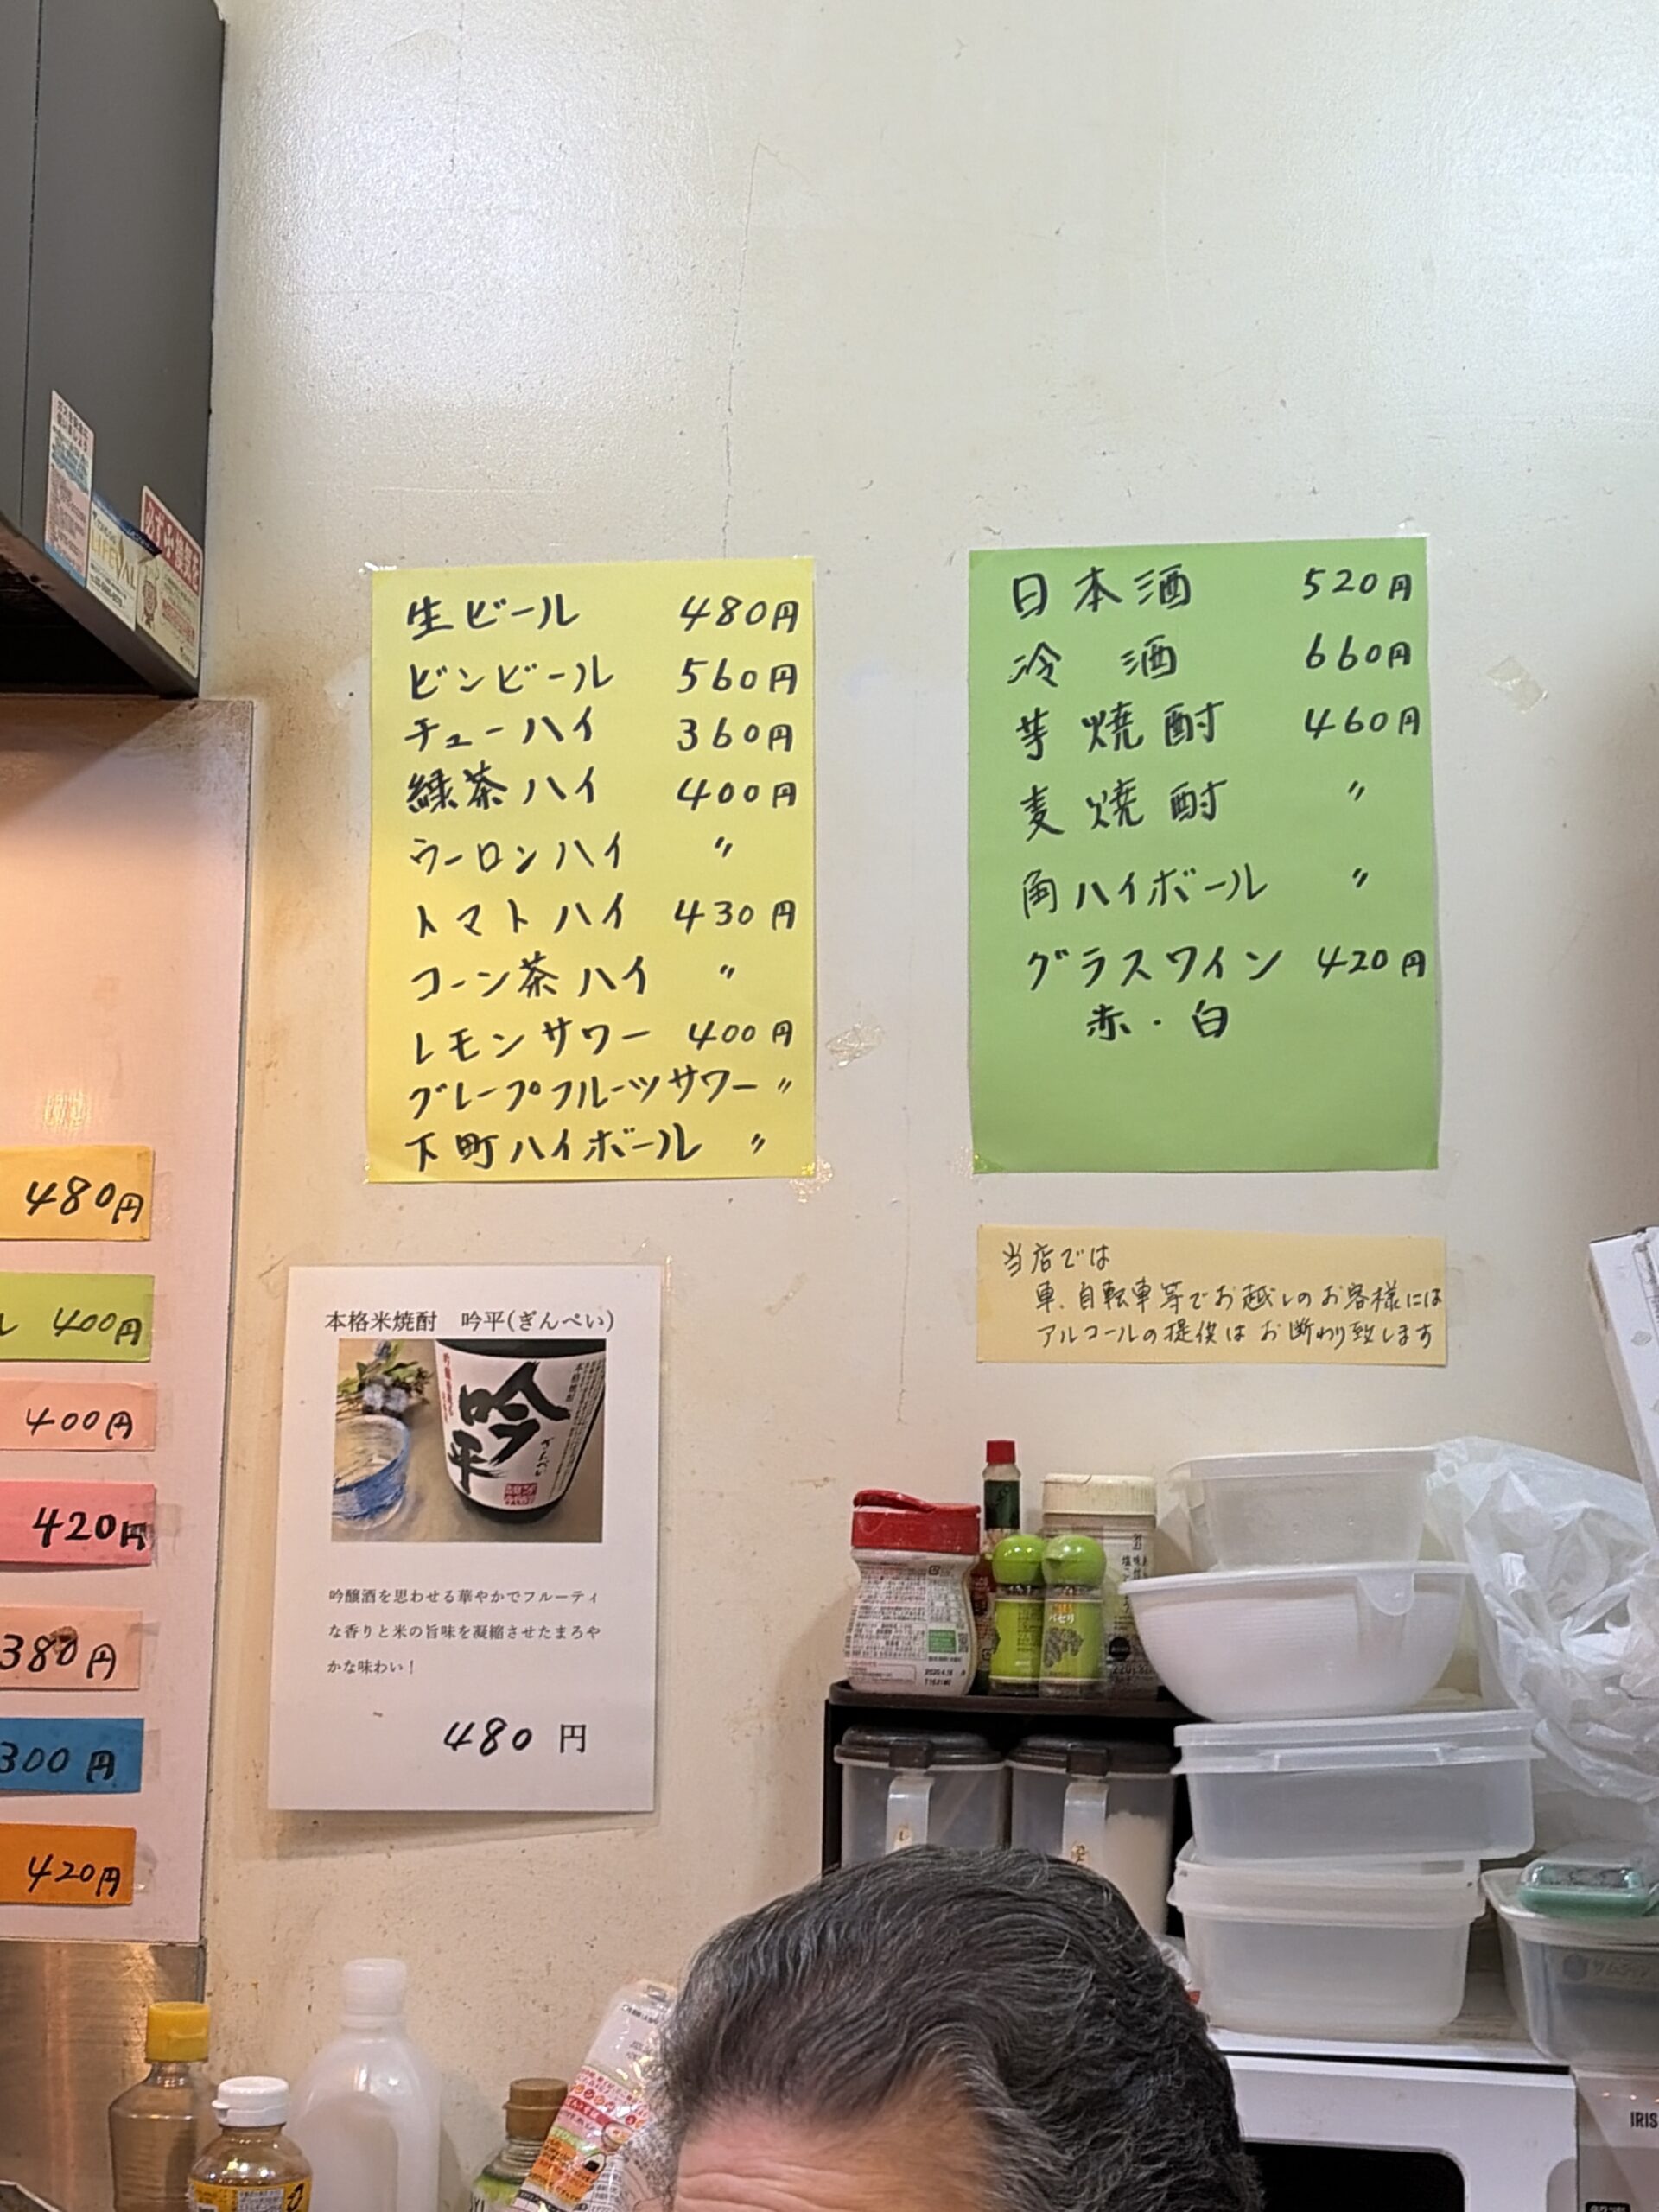 生ビール 480円
ビンビール 560円
チューハイ 360円
緑茶ハイ 400円
ウーロンハイ 〃
トマトハイ 430円
コーン茶ハイ 〃
レモンサワー 400円
グレープフルーツサワー 〃
下町ハイボール 〃
日本酒 520円
冷酒 660円
芋焼酎 460円
麦焼酎 〃
角ハイボール 〃
グラスワイン 420円
赤・白
当店では
車、自転車等でお越しのお客様には
アルコールの提供はお断わり致します
480円
ル 400円
400円
420円
380円
300円
420円
本格米焼酎 吟平(ぎんぺい)
本格焼酎
吟平
ぎんぺい
吟醸酒を思わせる華やかでフルーティ
な香りと米の旨味を凝縮させたまろや
かな味わい！
480 円
LIFEVAL
パセリ
IRIS